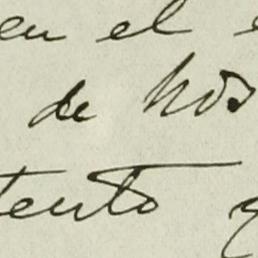 en el
de hos
tento y